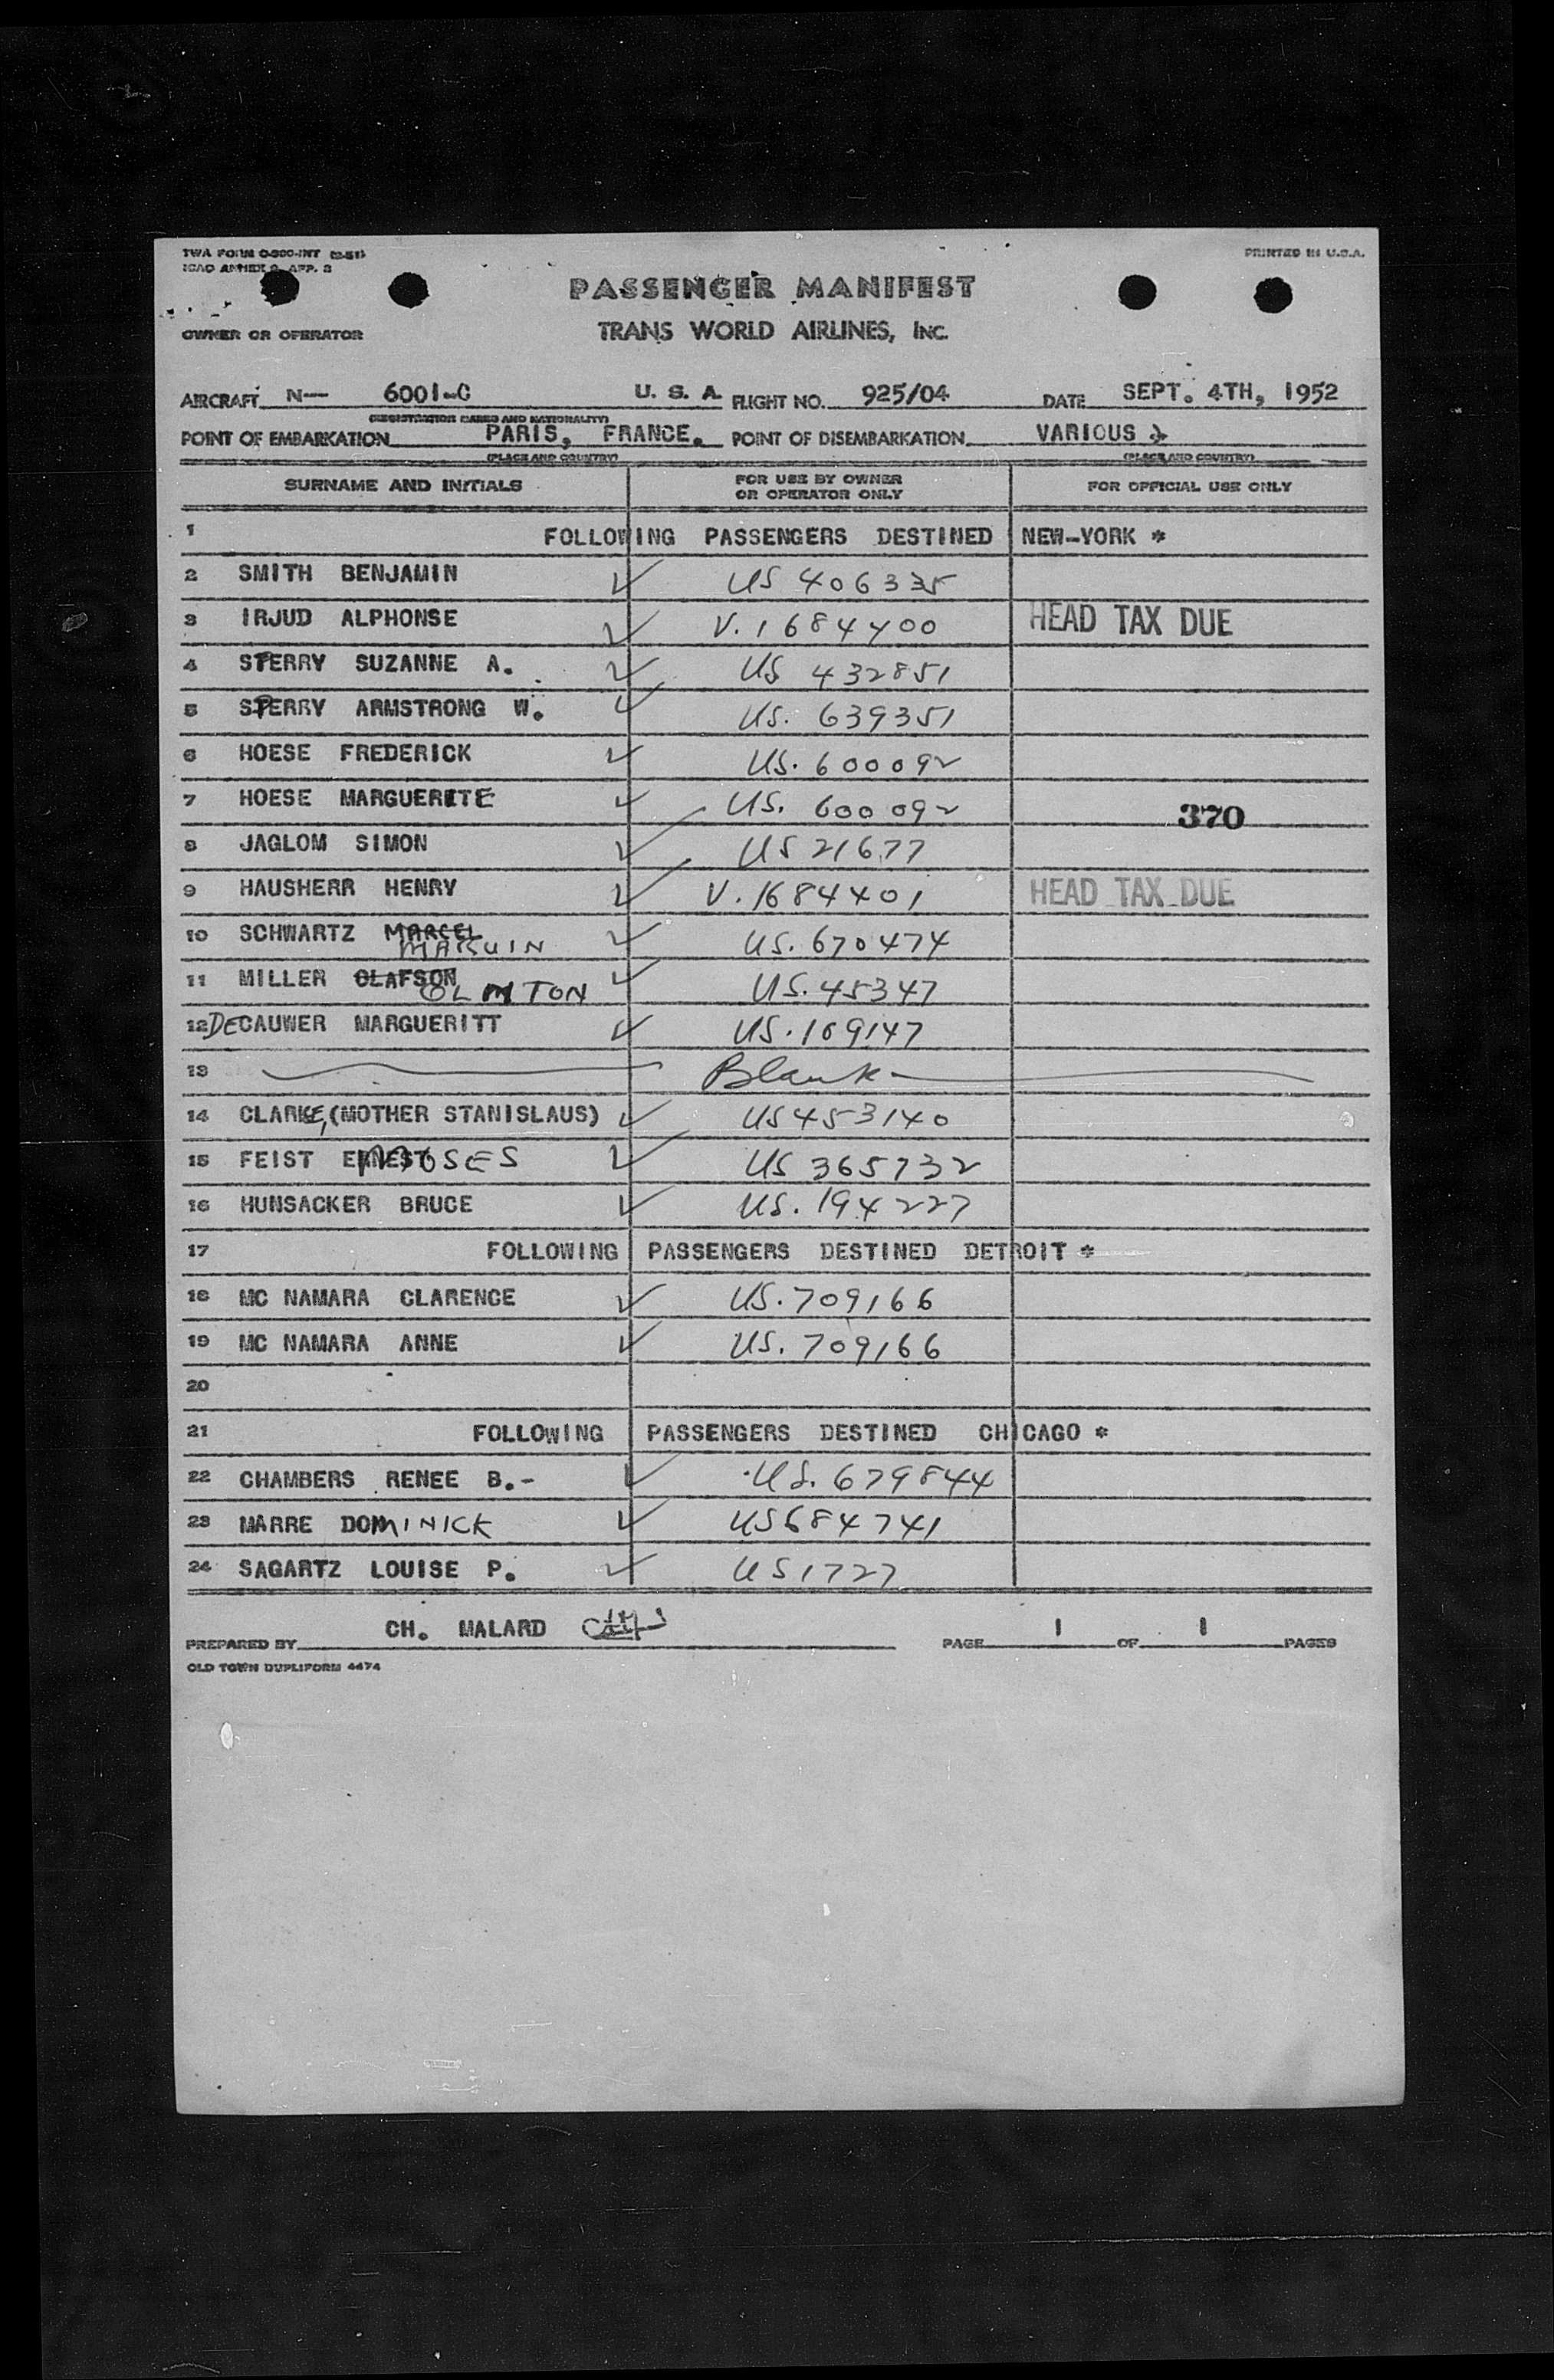 TWA FORM O-300-INT (2-51)
ICAO ANNEX 9, APP. 2
PRINTED IN U.S.A.
PASSENGER MANIFEST
OWNER OR OPERATOR
TRANS WORLD AIRLINES, INC.
AIRCRAFT N— 6001-C U. S. A. FLIGHT NO. 925/04 DATE SEPT. 4TH, 1952
(REGISTRATION MARKS AND NATIONALITY)
POINT OF EMBARKATION PARIS, FRANCE. POINT OF DISEMBARKATION VARIOUS
(PLACE AND COUNTRY) (PLACE AND COUNTRY)
SURNAME AND INITIALS FOR USE BY OWNER OR OPERATOR ONLY FOR OFFICIAL USE ONLY
1 FOLLOWING PASSENGERS DESTINED NEW-YORK *
2 SMITH BENJAMIN ✓ US 406335
3 IRJUD ALPHONSE ✓ V. 1684400 HEAD TAX DUE
4 SPERRY SUZANNE A. ✓ US 432851
5 SPERRY ARMSTRONG W. ✓ US. 639351
6 HOESE FREDERICK ✓ US. 600092
7 HOESE MARGUERITE ✓ US. 600092 370
8 JAGLOM SIMON ✓ US 21677
9 HAUSHERR HENRY ✓ V. 1684401 HEAD TAX DUE
10 SCHWARTZ MARCEL ✓ US. 670474
MARVIN
11 MILLER OLAFSON ✓ US. 45347
12 DECAUWER MARGUERITT ✓ US. 109147
13 Blank
14 CLARKE, (MOTHER STANISLAUS) ✓ US 453140
15 FEIST ERNEST MOSES ✓ US 365732
16 HUNSACKER BRUCE ✓ US. 194227
17 FOLLOWING PASSENGERS DESTINED DETROIT *
18 MC NAMARA CLARENCE ✓ US. 709166
19 MC NAMARA ANNE ✓ US. 709166
20
21 FOLLOWING PASSENGERS DESTINED CHICAGO *
22 CHAMBERS RENEE B.- ✓ US. 679844
23 MARRE DOMINICK ✓ US 684741
24 SAGARTZ LOUISE P. ✓ US 1727
PREPARED BY CH. MALARD PAGE 1 OF 1 PAGES
OLD TOWN DUPLIFORM 4474